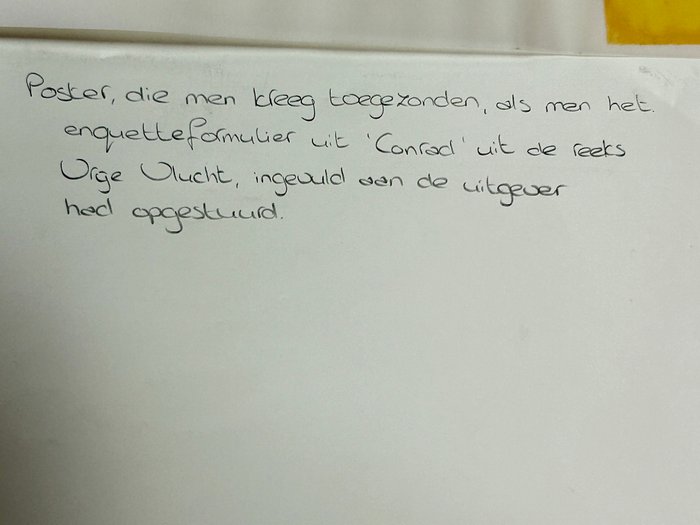 Poster, die men kreeg toegezonden, als men het.
enquetteformulier uit 'Conrad' uit de reeks
Vrge Vlucht, ingevuld aan de uitgever
had opgestuurd.